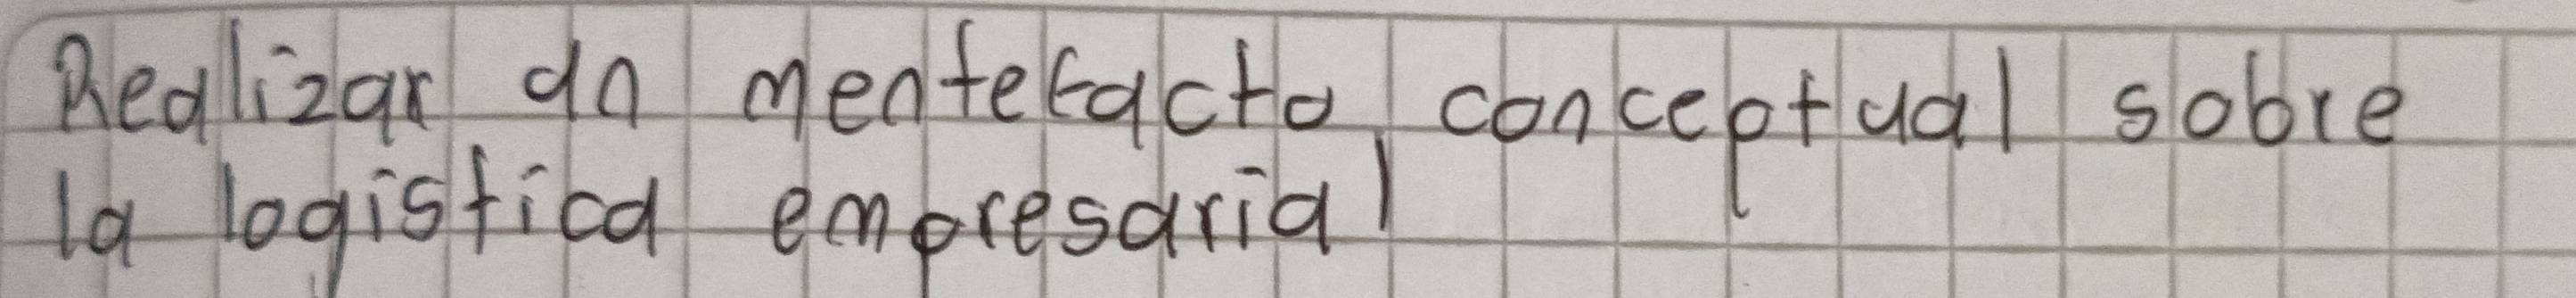 Realizar un mentefacto conceptual sobre
la logistica empresarial